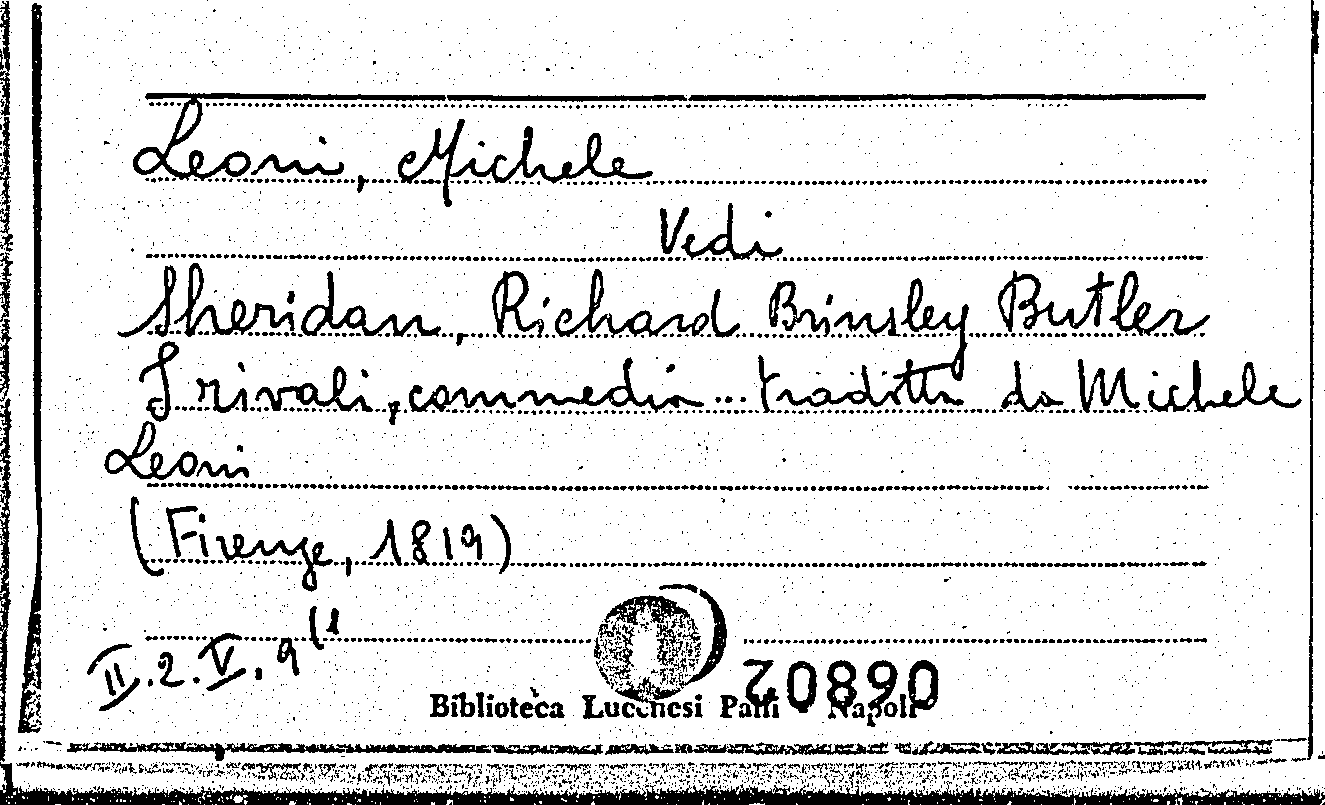 Leoni, Michele
Vedi
Sheridan, Richard Brinsley Butler
I rivali, commedia... tradotta da Michele
Leoni
(Firenze, 1819)
II.2.V.9(1
20890
Biblioteca Lucchesi Palli - Napoli